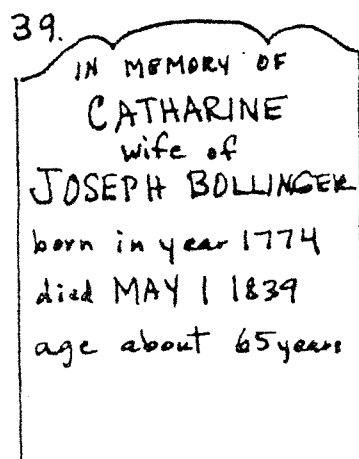 39.
IN MEMORY OF
CATHARINE
wife of
JOSEPH BOLLINGER
born in year 1774
died MAY 1 1839
age about 65 years